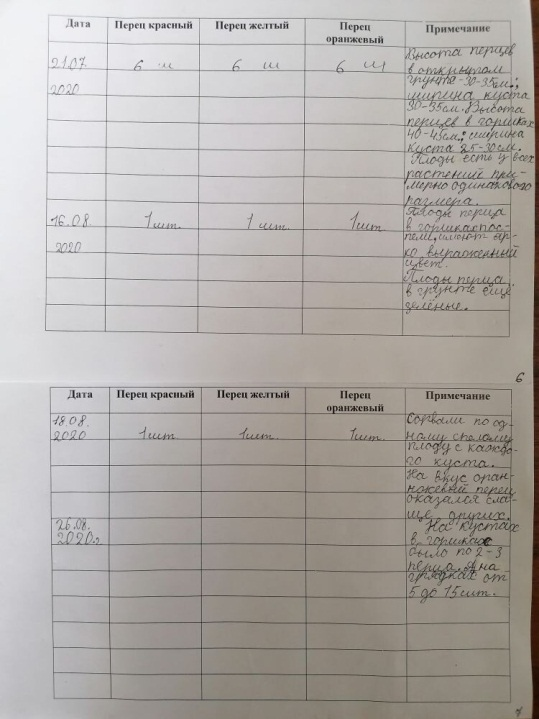 Дата Перец красный Перец желтый Перец оранжевый Примечание
21.07. 6 ш 6 ш 6 ш Высота перцев
в открытом
2020 грунте -30-35см.;
ширина куста
30-35см. Высота
перцев в горшках
40-45см.; ширина
куста 25-30см.
Плоды есть у всех
растений при-
мерно одинакового
размера.
16.08. 1шт. 1 шт. 1шт. Плоды перца
в горшках пос-
пели, имеют яр-
2020 ко выраженный
цвет.
Плоды перца
в грунте ещё
зелёные.
6
Дата Перец красный Перец желтый Перец оранжевый Примечание
18.08. Сорвали по од-
2020 1шт. 1шт. 1шт. ному спелому
плоду с каждо-
го куста.
На вкус оран-
жевый перец
оказался сла-
ще других.
26.08. На кустах
2020г. в горшках
было по 2-3
перца, а на
грядках от
5 до 15шт.
7